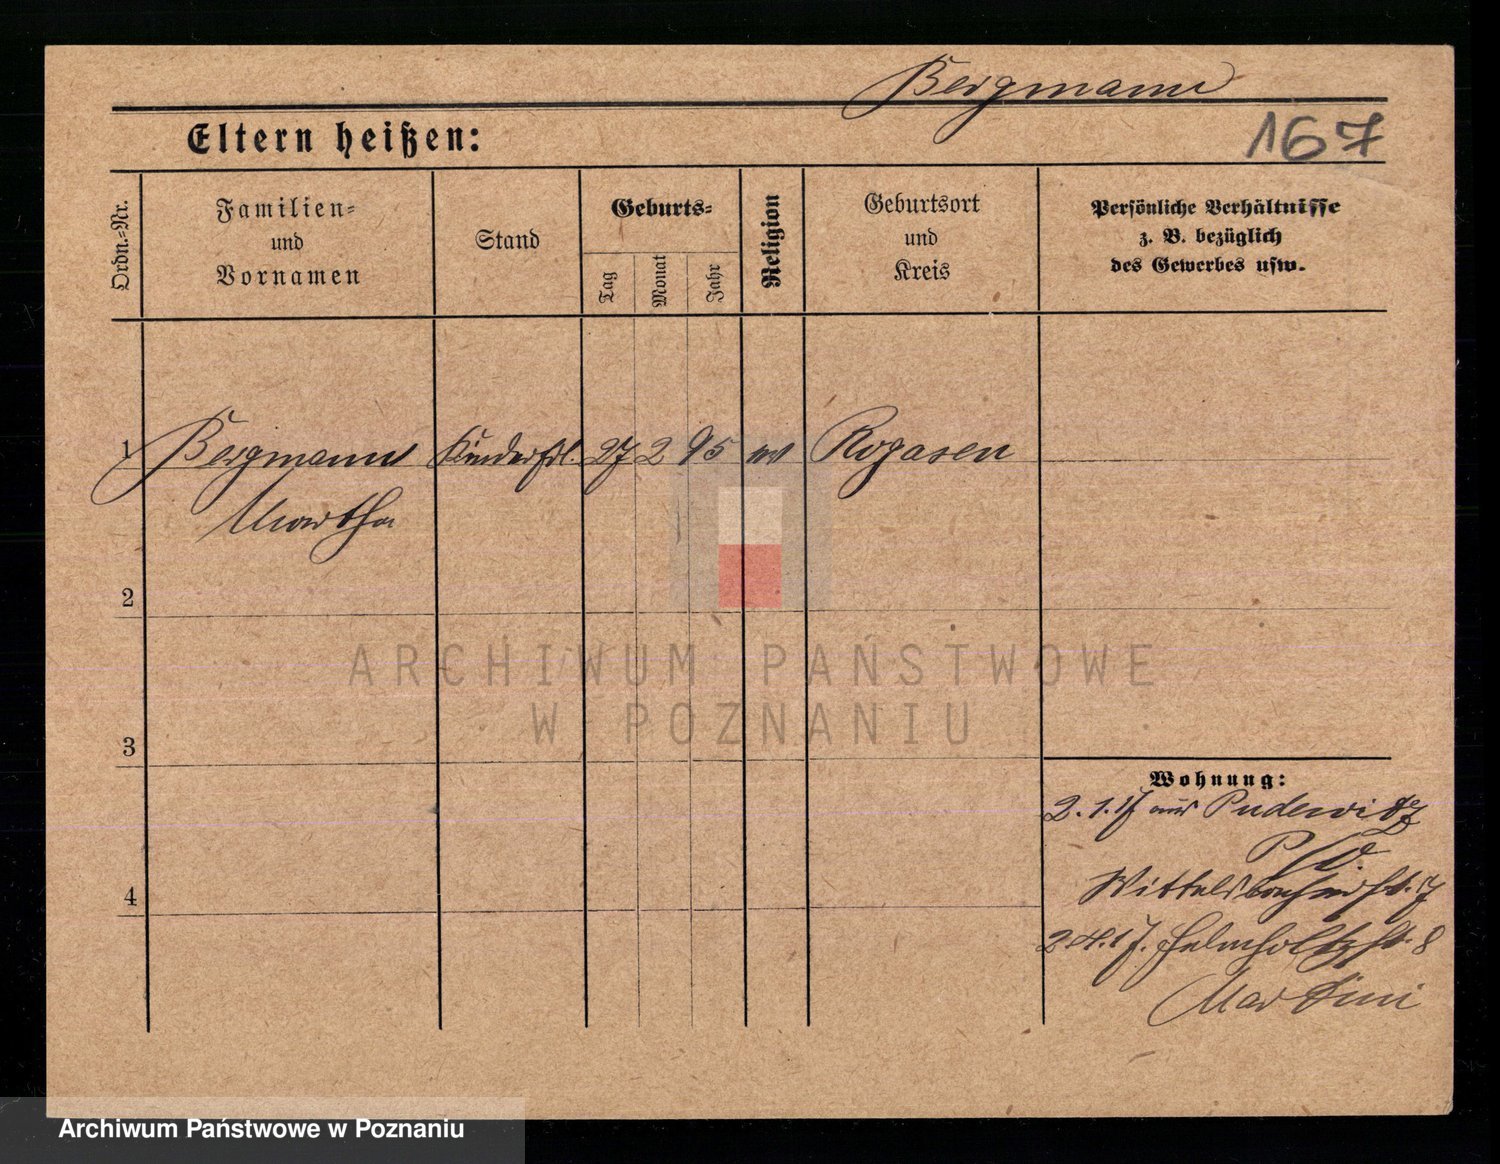 Bergmann
167
Eltern heißen:
Ordn.=Nr.
Familien=
und
Vornamen
Stand
Geburts=
Tag
Monat
Jahr
Religion
Geburtsort
und
Kreis
Persönliche Verhältnisse
z. B. bezüglich
des Gewerbes usw.
1 Bergmann Kinderfrl. 27 2 95 ev Rogasen
Martha
2
3
4
Wohnung:
2.1.17 aus Pudewitz
Wittelsbacherst. 7
2.4.17. Helmholtzst. 8
Martini
ARCHIWUM PAŃSTWOWE
W POZNANIU
Archiwum Państwowe w Poznaniu